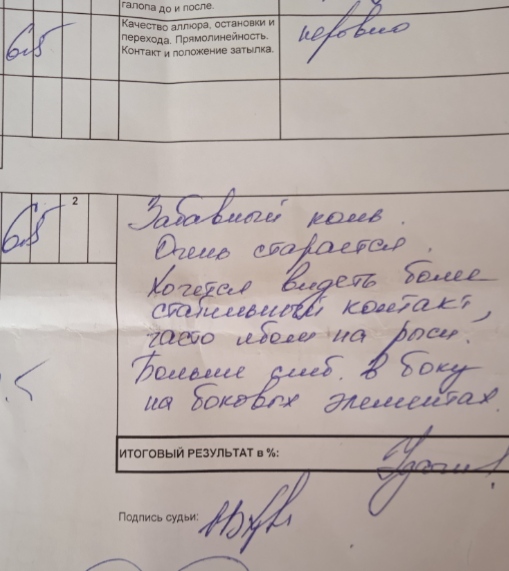 галопа до и после.
6.5
Качество аллюра, остановки и
перехода. Прямолинейность.
Контакт и положение затылка.
неровно
6.5
2
Забавный конь.
Очень старается.
Хочется видеть более
стабильный контакт,
часто лбом на рыси.
Больше сгиб. в боку
на боковых элементах.
ИТОГОВЫЙ РЕЗУЛЬТАТ в %:
Удачи!
Подпись судьи: